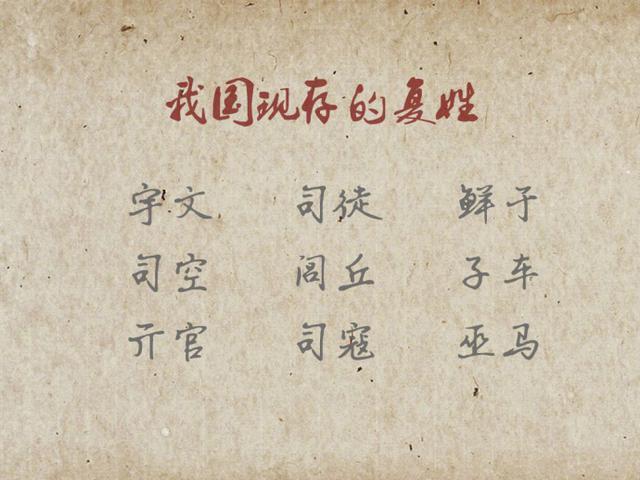 我国现存的复姓
宇文 司徒 鲜于
司空 闾丘 子车
亓官 司寇 巫马